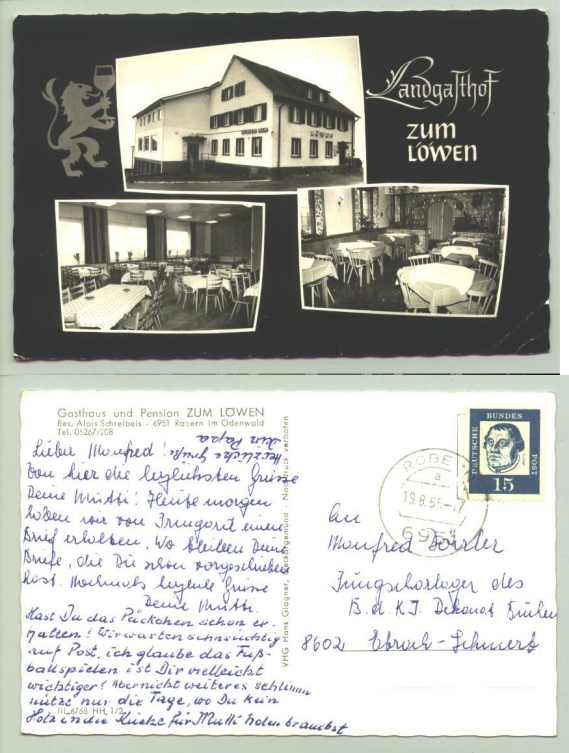 Landgasthof
ZUM
LÖWEN
Gasthaus und Pension ZUM LÖWEN
Bes. Alois Schreibeis - 6951 Robern im Odenwald
Tel. 06267/208
Herzliche Grüße
Dein Papa
Lieber Manfred!
Von hier die herzlichsten Grüsse
Deine Mutti! Heute morgen
haben wir von Irmgard einen
Brief erhalten. Wo bleiben Deine
Briefe, die Du schon vorgeschrieben
hast. Nochmals herzliche Grüsse
Deine Mutti.
Hast Du das Päckchen schon er-
halten! Wir warten sehnsüchtig
auf Post, ich glaube das Fuß-
ballspielen ist Dir vielleicht
wichtiger! Aber nicht weiteres schlimm
nütze nur die Tage, wo Du kein
Holz in die Küche für Mutti holen brauchst
III 6768 HH, 1/2
VHG Hans Glagner, Neckargemünd - Nachdruck verboten
ROBE
a
19.8.65-7
695
DEUTSCHE
BUNDES
POST
15
An
Manfred
Jungscharlager des
B.d.K.J. Dekanat
8602 Ebrach-